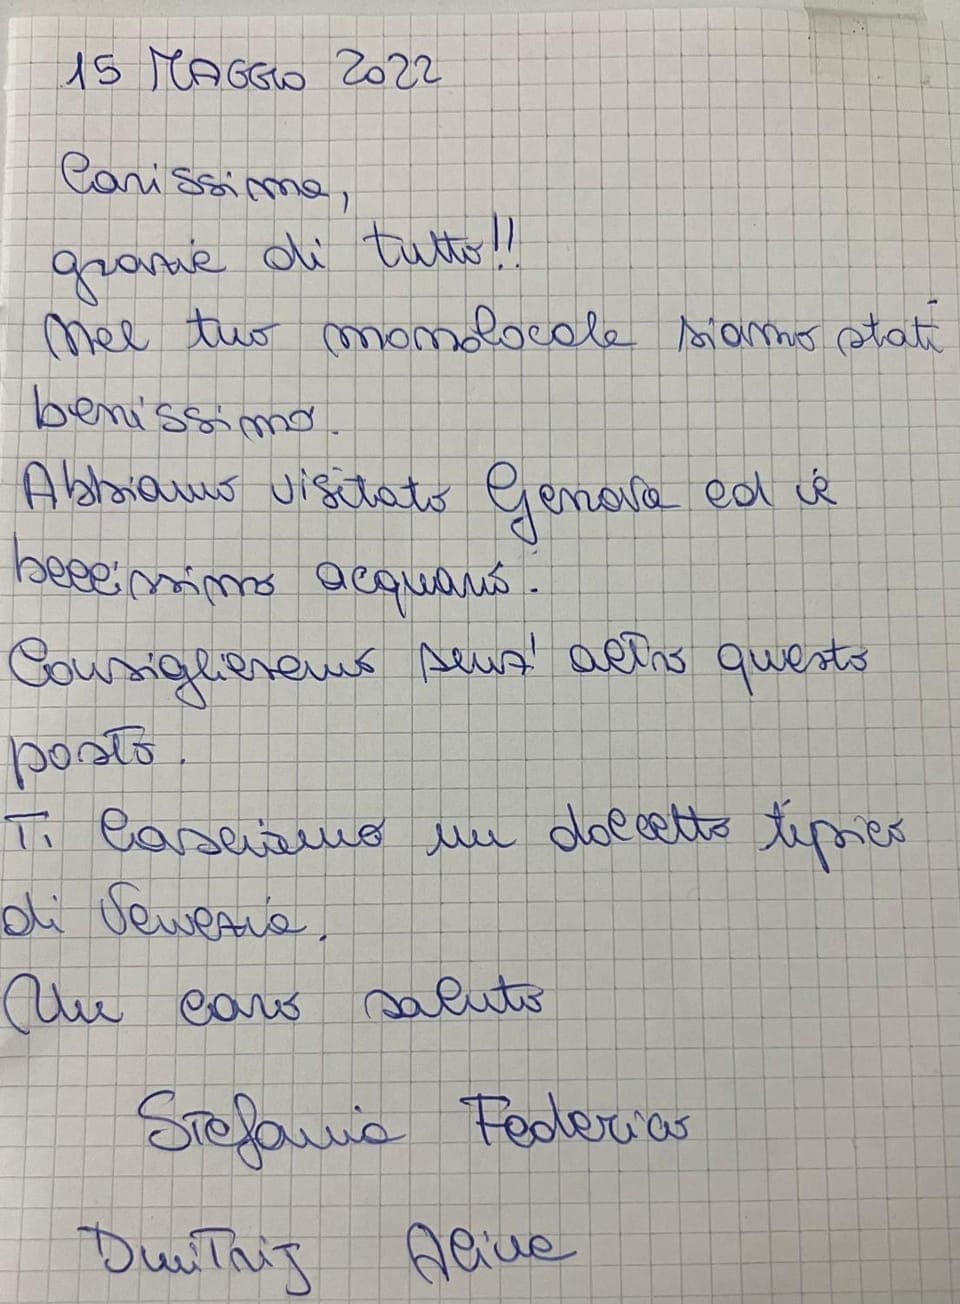 15 MAGGIO 2022
Carissima,
grazie di tutto!!
Nel tuo monolocale siamo stati
benissimo.
Abbiamo visitato Genova ed il
bellissimo acquario.
Consiglieremo senz' altro questo
posto.
Ti lasciamo un dolcetto tipico
di Venezia.
Un caro saluto
Stefania Federico
Dmitrij Alina